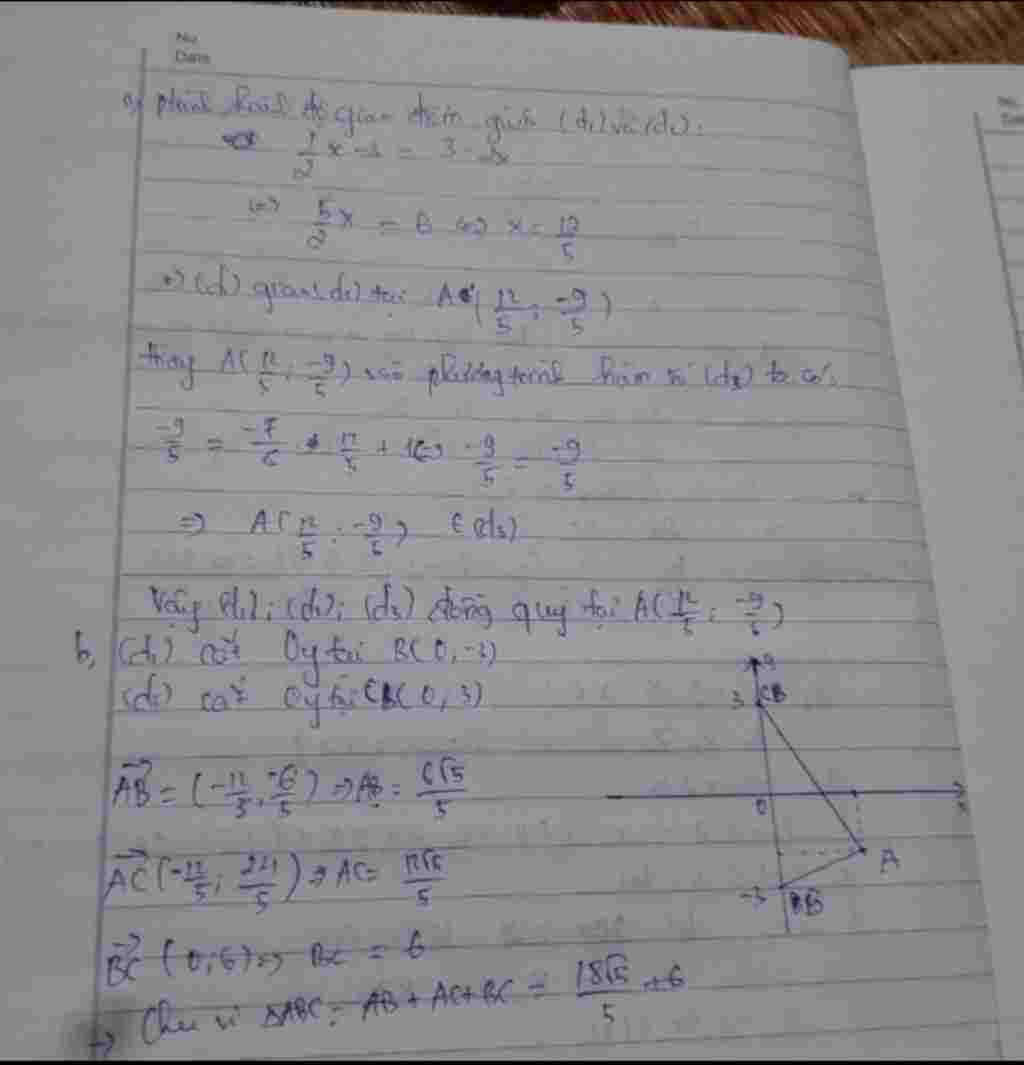 No.
Date
a, phương trình hoành độ giao điểm giữa (d₁) và (d₂):
1/2 x - 3 = 3 - 2x
<=> 5/2 x = 6 <=> x = 12/5
=> (d₁) giao (d₂) tại A(12/5; -9/5)
thay A(12/5; -9/5) vào phương trình hàm số (d₃) ta có:
-9/5 = -7/6 · 12/5 + 1 <=> -9/5 = -9/5
=> A(12/5; -9/5) ∈ (d₃)
Vậy (d₁); (d₂); (d₃) đồng quy tại A(12/5; -9/5)
b, (d₁) cắt Oy tại B(0,-3)
(d₂) cắt Oy tại C(0,3)
AB→ = (-12/5, -6/5) => AB = 6√5/5
AC→ (-12/5; 24/5) => AC = 12√5/5
BC→ (0;6) => BC = 6
=> Chu vi ΔABC = AB + AC + BC = 18√5/5 + 6
y
3 C
O
x
A
-3 B